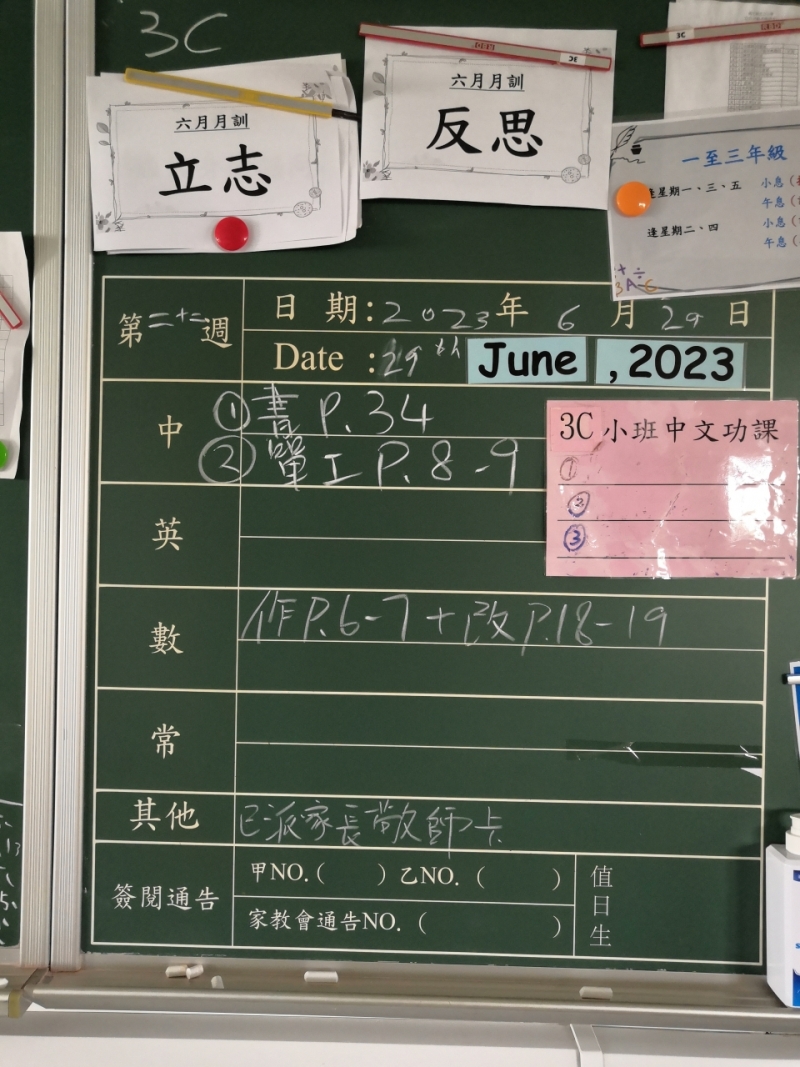 3C
六月月訓
立志
六月月訓
反思
3C
一至三年級
逢星期一、三、五
小息
午息
逢星期二、四
小息
午息
3A-C
第二十二週
日 期：2023年 6 月 29 日
Date : 29th June , 2023
中
①書 P. 34
②單工 P. 8-9
3C 小班中文功課
①
②
③
英
數
作P.6-7 + 改P.18-19
常
其他
已派家長敬師卡
簽閱通告
甲NO.( ) 乙NO. ( )
家教會通告NO. ( )
值日生